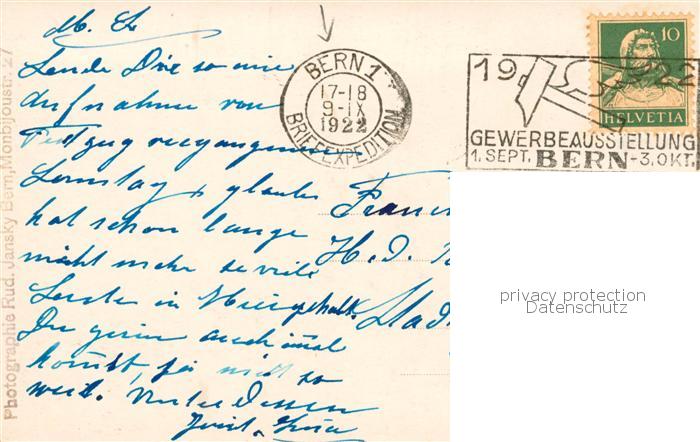 M. L.
Sende Dir so eine
Aufnahme von
Festzug vergangenen
Samstag & glaube
hat schon lange
nicht mehr so viele
Leute in
Du gerne auch einmal
kommst, ja nicht so
weit. Unterdessen
BERN 1
17-18
9-IX
1922
BRIEFEXPEDITION
1922
GEWERBEAUSSTELLUNG
1. SEPT. BERN - 3. OKT.
10
HELVETIA
H. D.
privacy protection
Datenschutz
Photographie Rud. Jansky Bern, Monbijoustr. 27